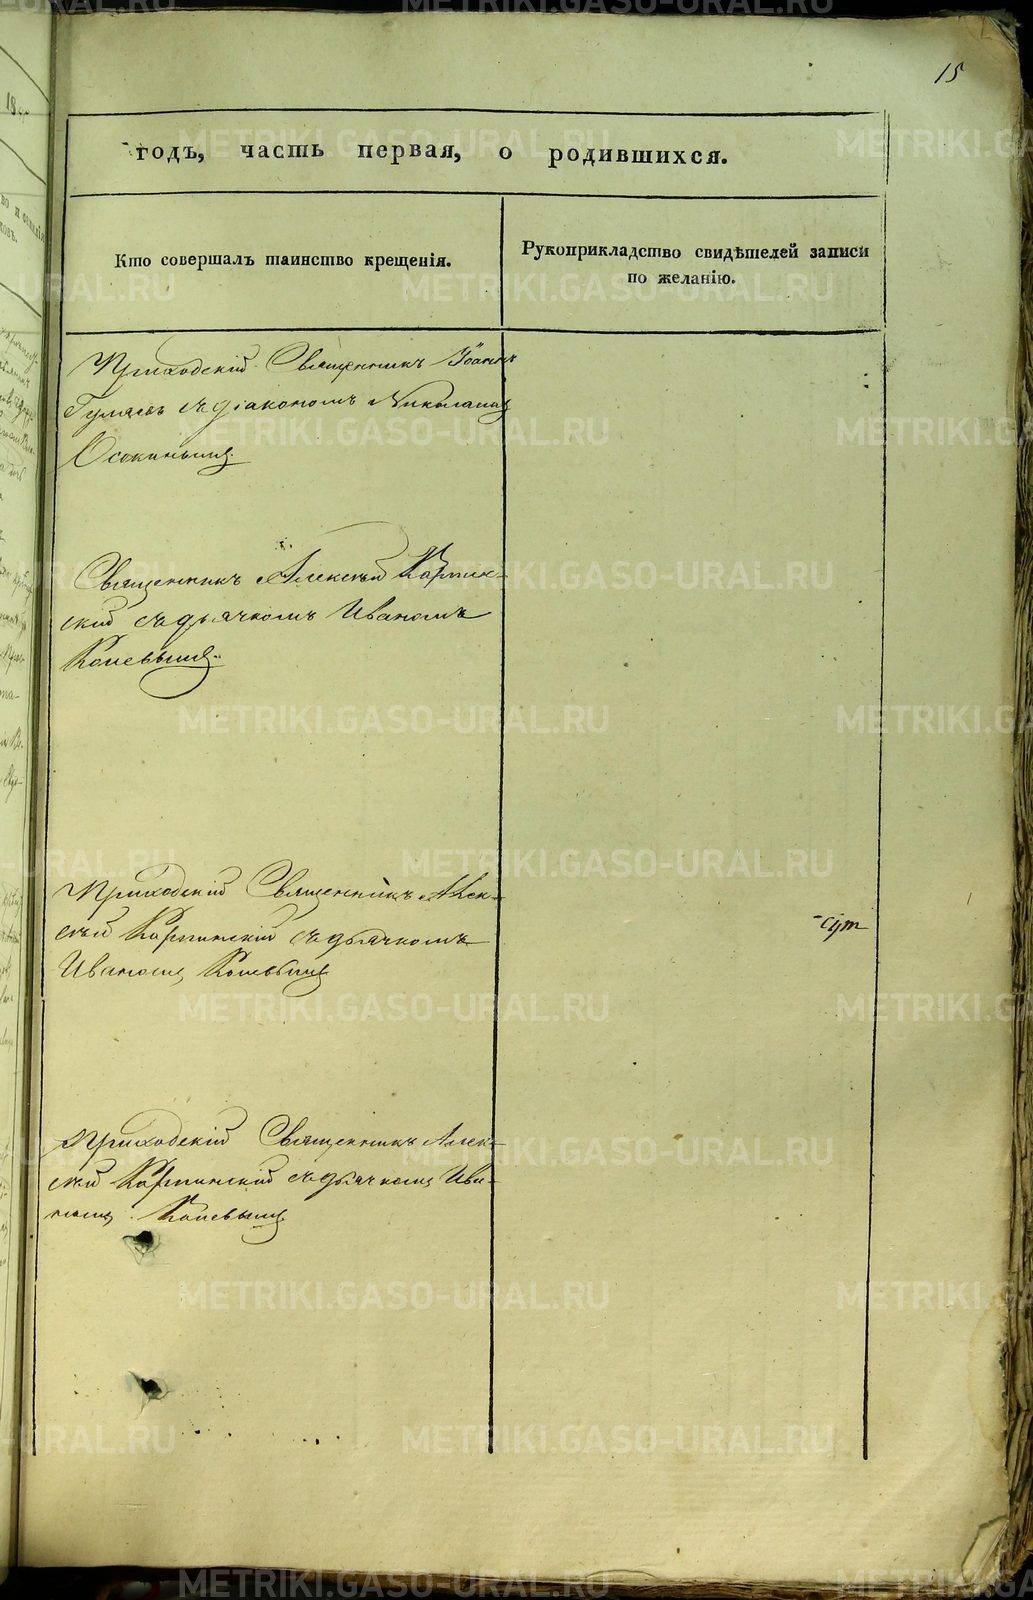 15
годъ, часть первая, о родившихся.
Кто совершалъ таинство крещенія.
Рукоприкладство свидѣтелей записи
по желанію.
Приходскій Священникъ Іоаннъ
съ діакономъ Николаемъ
Осокинымъ.
Священникъ Алексѣй Карпин-
скій съ дьячкомъ Иваномъ
Коневымъ.
Приходскій Священникъ Алек-
сѣй Карпинскій съ дьячкомъ
Иваномъ Коневымъ
Приходскій Священникъ Алек-
сѣй Карпинскій съ дьячкомъ Ива-
номъ Коневымъ.
METRIKI.GASO-URAL.RU